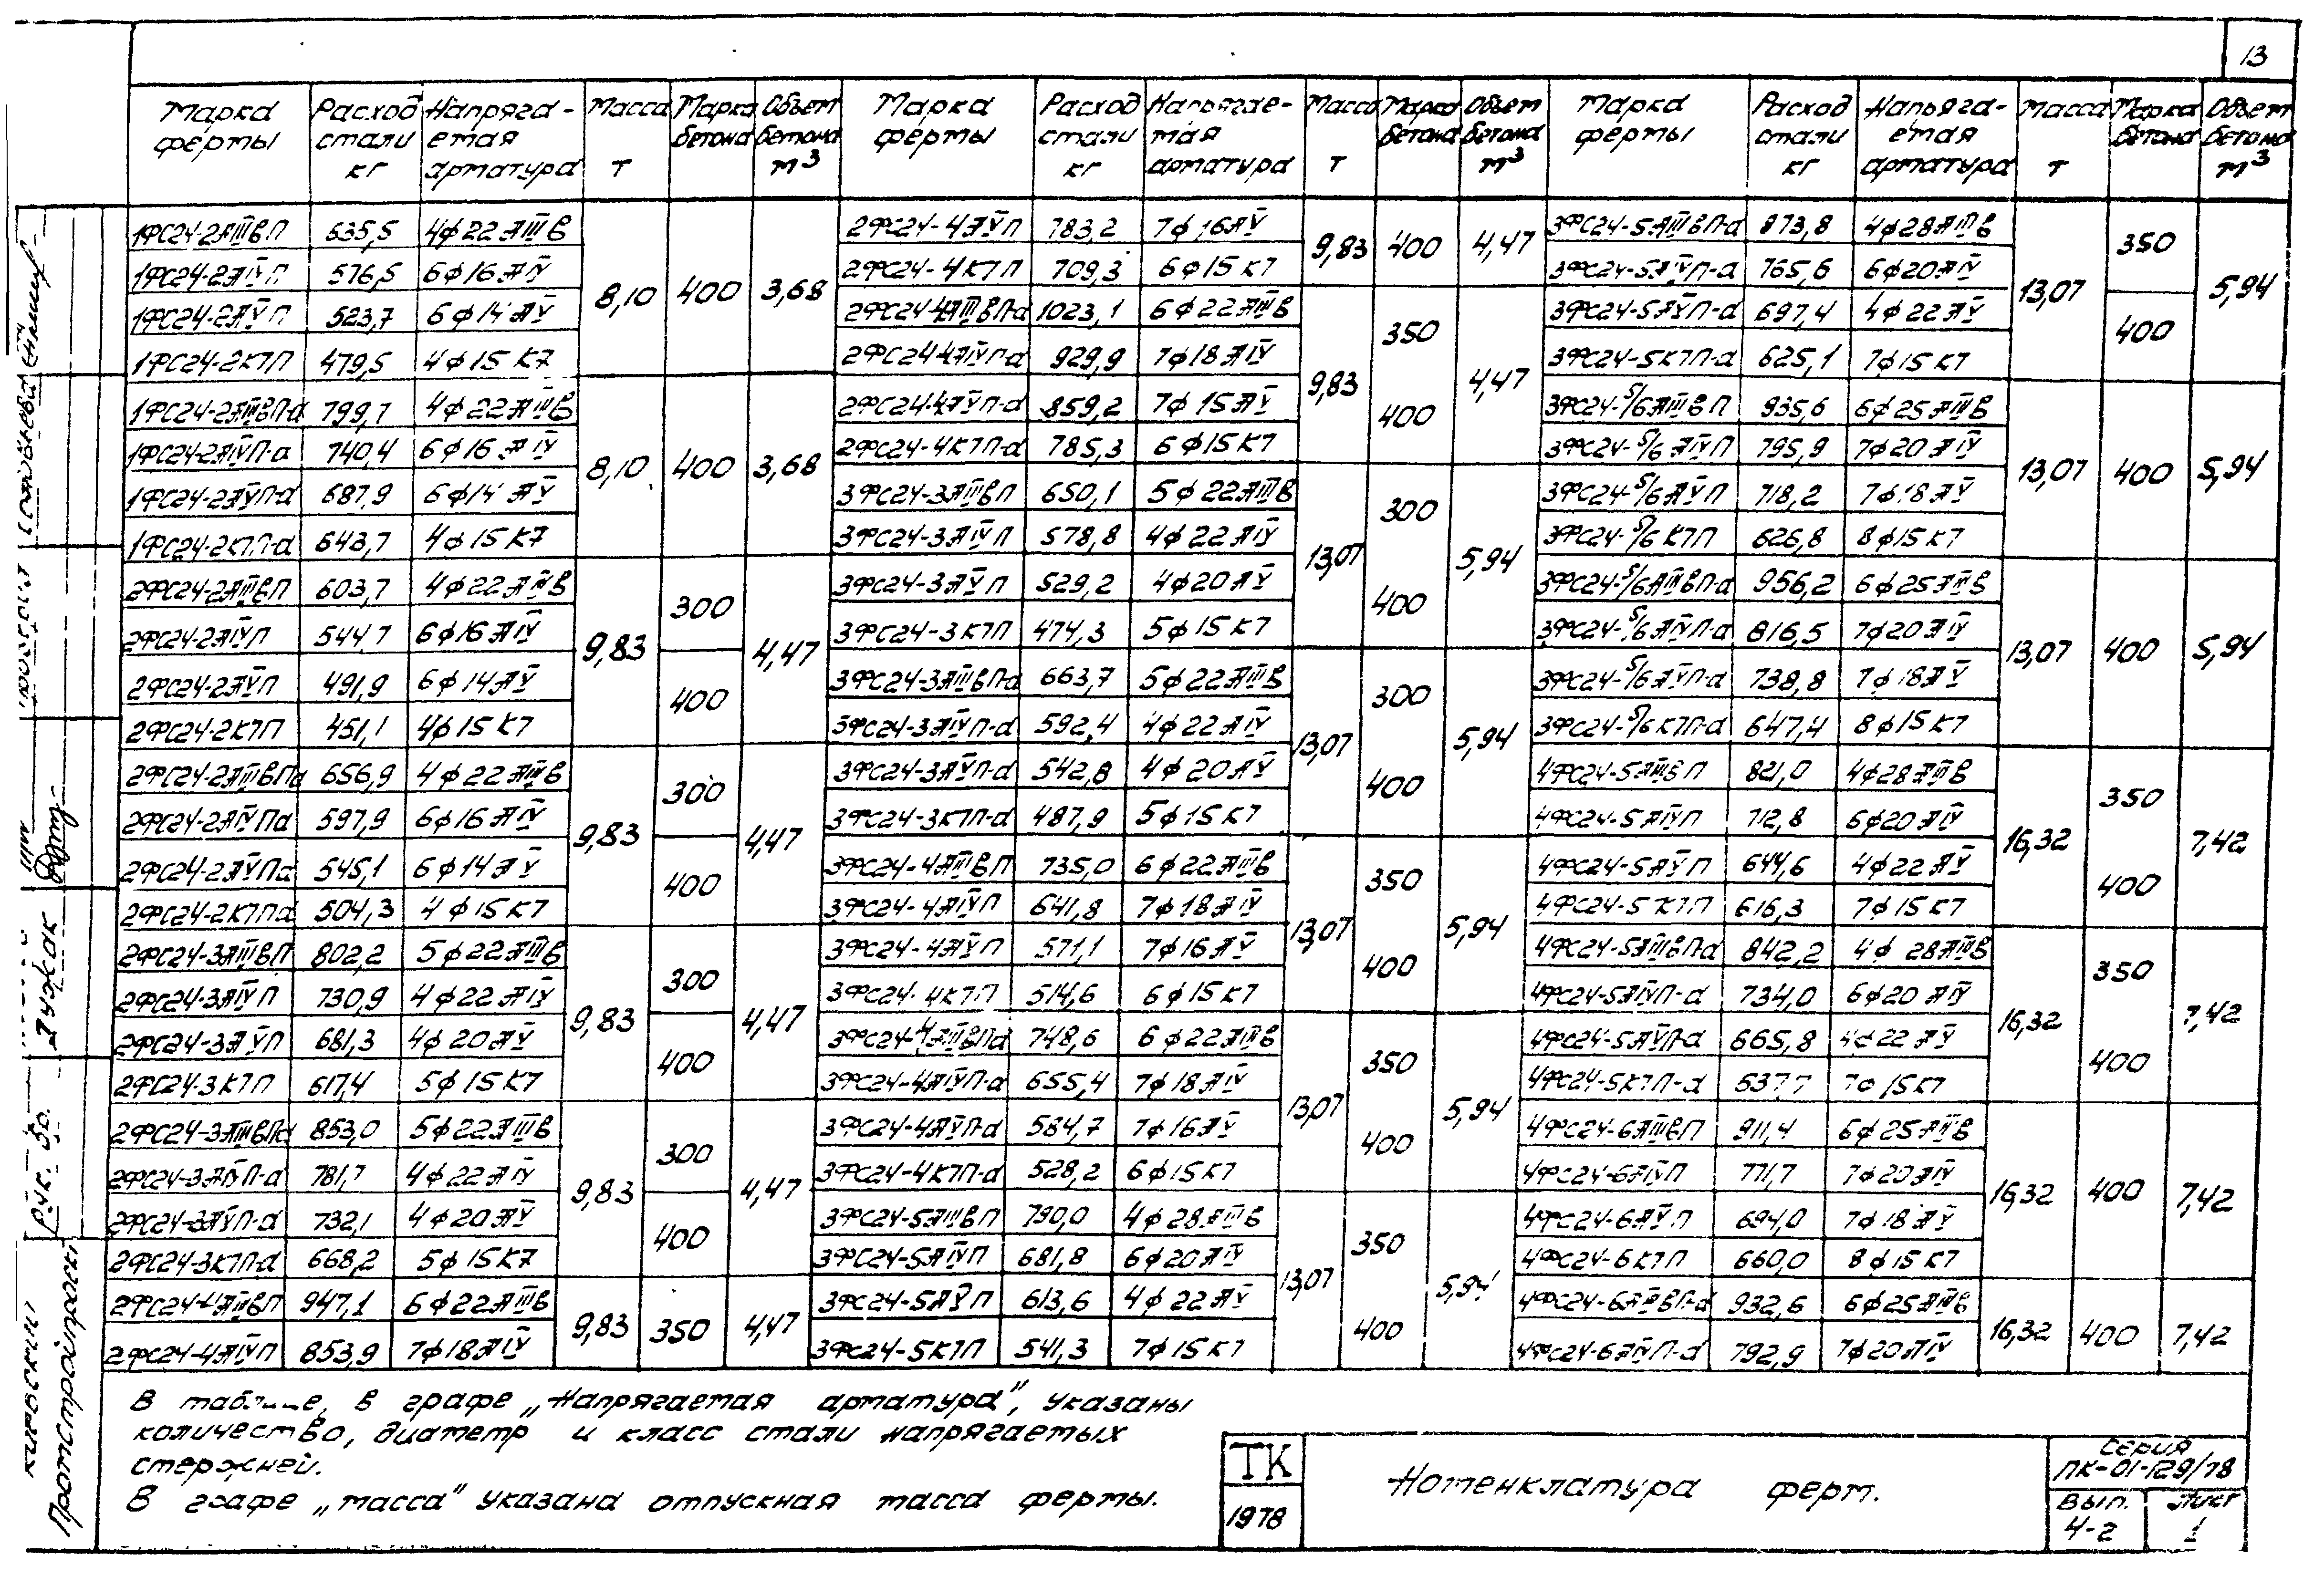 13
Марка фермы | Расход стали кг | Напрягаемая арматура | Масса т | Марка бетона | Объем бетона м³
1ФС24-2АIIIвП 635,5 4ф22АIIIв 8,10 400 3,68
1ФС24-2АIVП 576,5 6ф16АIV
1ФС24-2АVП 523,7 6ф14АV
1ФС24-2К7П 479,5 4ф15К7
1ФС24-2АIIIвП-а 799,7 4ф22АIIIв 8,10 400 3,68
1ФС24-2АIVП-а 740,4 6ф16АIV
1ФС24-2АVП-а 687,9 6ф14АV
1ФС24-2К7П-а 643,7 4ф15К7
2ФС24-2АIIIвП 603,7 4ф22АIIIв 9,83 300 4,47
2ФС24-2АIVП 544,7 6ф16АIV
2ФС24-2АVП 491,9 6ф14АV 400
2ФС24-2К7П 451,1 4ф15К7
2ФС24-2АIIIвПа 656,9 4ф22АIIIв 9,83 300 4,47
2ФС24-2АIVПа 597,9 6ф16АIV
2ФС24-2АVПа 545,1 6ф14АV 400
2ФС24-2К7Па 504,3 4ф15К7
2ФС24-3АIIIвП 802,2 5ф22АIIIв 9,83 300 4,47
2ФС24-3АIVП 730,9 4ф22АIV
2ФС24-3АVП 681,3 4ф20АV 400
2ФС24-3К7П 617,4 5ф15К7
2ФС24-3АIIIвПа 853,0 5ф22АIIIв 9,83 300 4,47
2ФС24-3АIVП-а 781,7 4ф22АIV
2ФС24-3АVП-а 732,1 4ф20АV 400
2ФС24-3К7П-а 668,2 5ф15К7
2ФС24-4АIIIвП 947,1 6ф22АIIIв 9,83 350 4,47
2ФС24-4АIVП 853,9 7ф18АIV
Марка фермы | Расход стали кг | Напрягаемая арматура | Масса т | Марка бетона | Объем бетона м³
2ФС24-4АVП 783,2 7ф16АV 9,83 400 4,47
2ФС24-4К7П 709,3 6ф15К7
2ФС24-4АIIIвП-а 1023,1 6ф22АIIIв 9,83 350 4,47
2ФС24-4АIVП-а 929,9 7ф18АIV
2ФС24-4АVП-а 859,2 7ф15АV 400
2ФС24-4К7П-а 785,3 6ф15К7
3ФС24-3АIIIвП 650,1 5ф22АIIIв 13,07 300 5,94
3ФС24-3АIVП 578,8 4ф22АIV
3ФС24-3АVП 529,2 4ф20АV 400
3ФС24-3К7П 474,3 5ф15К7
3ФС24-3АIIIвП-а 663,7 5ф22АIIIв 13,07 300 5,94
3ФС24-3АIVП-а 592,4 4ф22АIV
3ФС24-3АVП-а 542,8 4ф20АV 400
3ФС24-3К7П-а 487,9 5ф15К7
3ФС24-4АIIIвП 735,0 6ф22АIIIв 13,07 350 5,94
3ФС24-4АIVП 641,8 7ф18АIV
3ФС24-4АVП 571,1 7ф16АV 400
3ФС24-4К7П 514,6 6ф15К7
3ФС24-4АIIIвПа 748,6 6ф22АIIIв 13,07 350 5,94
3ФС24-4АIVП-а 655,4 7ф18АIV
3ФС24-4АVП-а 584,7 7ф16АV 400
3ФС24-4К7П-а 528,2 6ф15К7
3ФС24-5АIIIвП 790,0 4ф28АIIIв 13,07 350 5,94
3ФС24-5АIVП 681,8 6ф20АIV
3ФС24-5АVП 613,6 4ф22АV 400
3ФС24-5К7П 541,3 7ф15К7
Марка фермы | Расход стали кг | Напрягаемая арматура | Масса т | Марка бетона | Объем бетона м³
3ФС24-5АIIIвП-а 873,8 4ф28АIIIв 13,07 350 5,94
3ФС24-5АIVП-а 765,6 6ф20АIV
3ФС24-5АVП-а 697,4 4ф22АV 400
3ФС24-5К7П-а 625,1 7ф15К7
3ФС24-5/6АIIIвП 935,6 6ф25АIIIв 13,07 400 5,94
3ФС24-5/6АIVП 795,9 7ф20АIV
3ФС24-5/6АVП 718,2 7ф18АV
3ФС24-5/6К7П 626,8 8ф15К7
3ФС24-5/6АIIIвП-а 956,2 6ф25АIIIв 13,07 400 5,94
3ФС24-5/6АIVП-а 816,5 7ф20АIV
3ФС24-5/6АVП-а 738,8 7ф18АV
3ФС24-5/6К7П-а 647,4 8ф15К7
4ФС24-5АIIIвП 821,0 4ф28АIIIв 16,32 350 7,42
4ФС24-5АIVП 712,8 6ф20АIV
4ФС24-5АVП 644,6 4ф22АV 400
4ФС24-5К7П 616,3 7ф15К7
4ФС24-5АIIIвП-а 842,2 4ф28АIIIв 16,32 350 7,42
4ФС24-5АIVП-а 734,0 6ф20АIV
4ФС24-5АVП-а 665,8 4ф22АV 400
4ФС24-5К7П-а 7ф15К7
4ФС24-6АIIIвП 911,4 6ф25АIIIв 16,32 400 7,42
4ФС24-6АIVП 771,7 7ф20АIV
4ФС24-6АVП 694,0 7ф18АV
4ФС24-6К7П 660,0 8ф15К7
4ФС24-6АIIIвП-а 932,6 6ф25АIIIв 16,32 400 7,42
4ФС24-6АIVП-а 792,9 7ф20АIV
В таблице, в графе „Напрягаемая арматура", указаны
количество, диаметр и класс стали напрягаемых
стержней.
В графе „масса" указана отпускная масса фермы.
ТК
1978
Номенклатура ферм.
Серия
ПК-01-129/78
Вып. Лист
4-2 1
Рук. гр.
Лужак
Промстройпроект